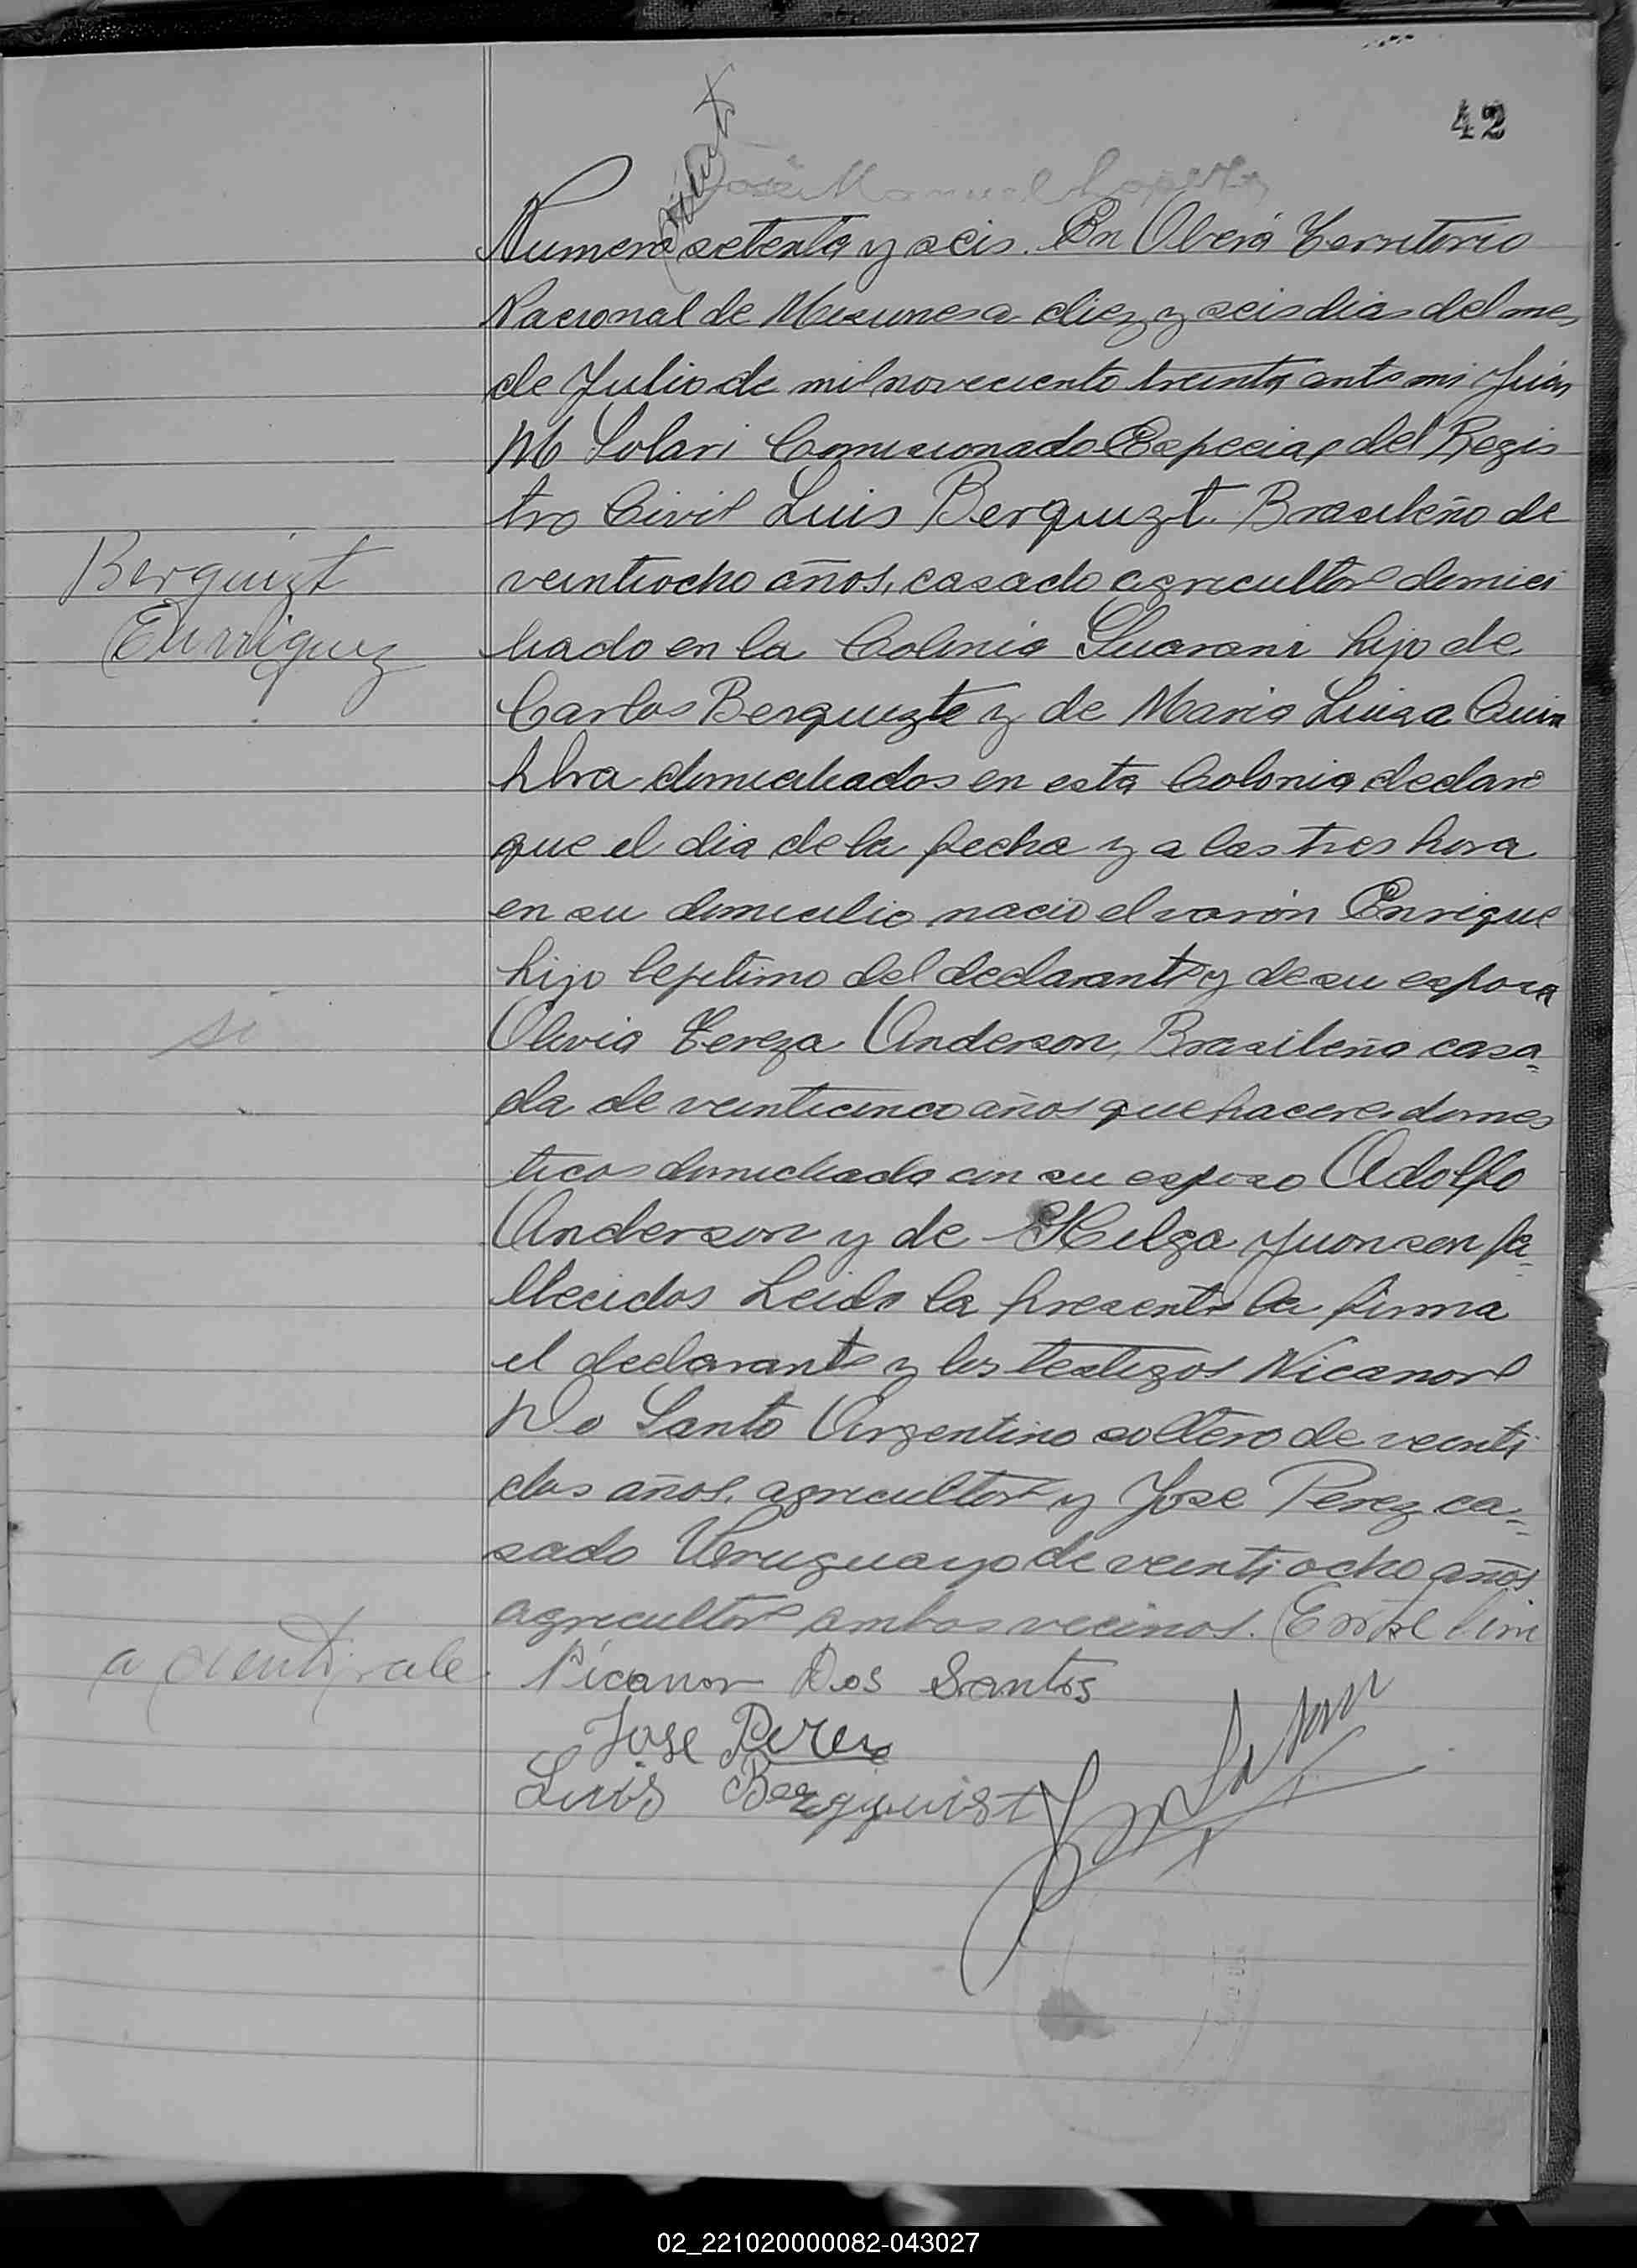 42
José Manuel Lopez
Numero setenta y seis. En Oberá Territorio
Nacional de Misiones a diez y seis dias del mes
de Julio de mil noveciento treinta ante mi Juan
M Solari Comisionado Especial del Regis
tro Civil Luis Berquizt. Brasileño de
Berquizt
veintiocho años, casado agricultor domici
Enrriquez
liado en la Colonia Guarani hijo de
Carlos Berquizte y de Maria Luisa
domiciliados en esta Colonia declaró
que el dia de la fecha y a las tres hora
en su domicilio nació el varón Enrique
hijo lejitimo del declarante y de su esposa
si
Olivia Tereza Anderson, Brasileña casa-
da de veinticinco años quehaceres domes
ticos domiciliada con su esposo Adolfo
Anderson y de Hilga Juonson fa-
llecidos Leida la presente la firma
el declarante y los testigos Nicanor
Do Santo Argentino soltero de veinti
dos años, agricultor y Jose Perez ca-
sado Uruguayo de veintiocho años
agricultor ambos vecinos. Entre lini
a vale.
Nicanor Dos Santos
Jose Perez
Luis Bergquist
02_221020000082-043027